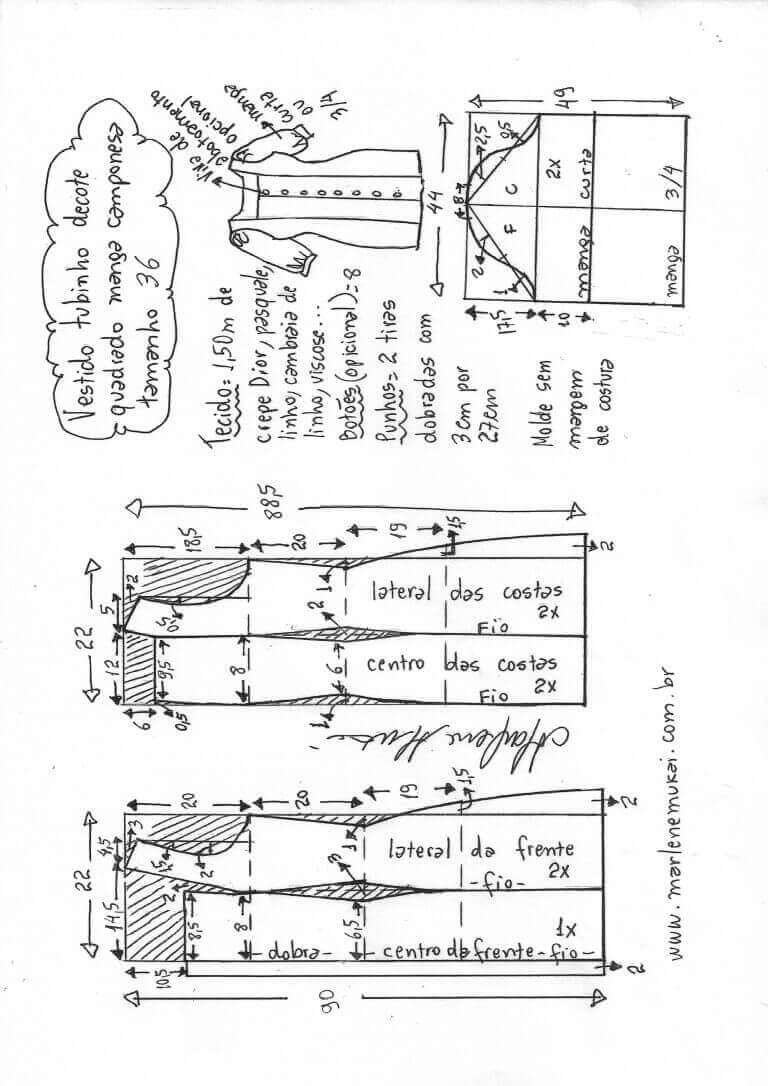 Vestido tubinho decote
quadrado manga camponesa
tamanho 36
Tecido = 1,50m de
crepe Dior, pasquale,
linho, cambraia de
linho, viscose...
Botões (opicional) = 8
Punhos = 2 tiras
dobradas com
3cm por
27cm
Molde sem
margem
de costura
Vista de
abotoamento
opcional
manga
curta
ou
3/4
44
49
8
2,5
0,5
2
1
F
C
17,5
10
2x
manga curta
manga 3/4
88,5
22
12
5
2
18,5
20
19
1,5
0,5
1
2
lateral das costas
2x
Fio
9,5
8
6
centro das costas
2x
Fio
6
0,5
1
2
Marlene Mukai
22
14,5
4,5
3
20
20
19
1,5
1,5
2
1
3
lateral da frente
2x
-fio-
2
8,5
8
6,5
1x
-dobra- -centro da frente-fio-
10,5
2
2
90
www.marlenemukai.com.br